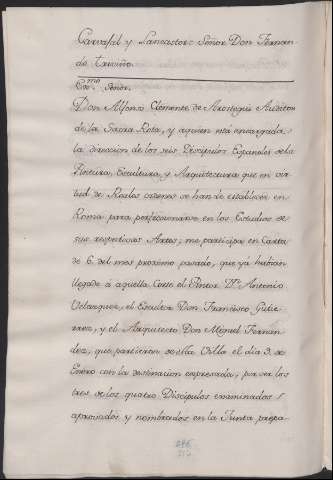 Carvajal y Lancaster: Señor Don Fernan-
do Triviño.
Exmo. Señor.
Don Alfonso Clemente de Arostegui Auditor
de la Sacra Rota, y aquien esta encargada
la direccion de los seis Discipulos Españoles de la
Pintura, Escultura y Arquitectura que en vir
tud de Reales ordenes se han de establecer en
Roma para perfecionarse en los Estudios de
sus respectivas Artes; me participa en Carta
de 6. del mes proximo pasado, que yà habian
llegado â aquella Corte el Pintor Dn. Antonio
Velazquez, el Escultor Don Francisco Gutie-
rrez, y el Arquitecto Don Miguel Fernan-
dez, que partieron de esta Villa el dia 3. de
Enero con la destinacion expresada, por ser los
tres de los quatro Discipulos examinados,
aprovados y nombrados en la Junta prepa-